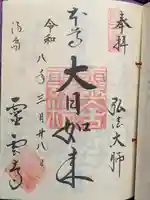 奉拝
弘法大師
本尊
大日如来
令和八年三月廿八日
湯島
霊雲寺